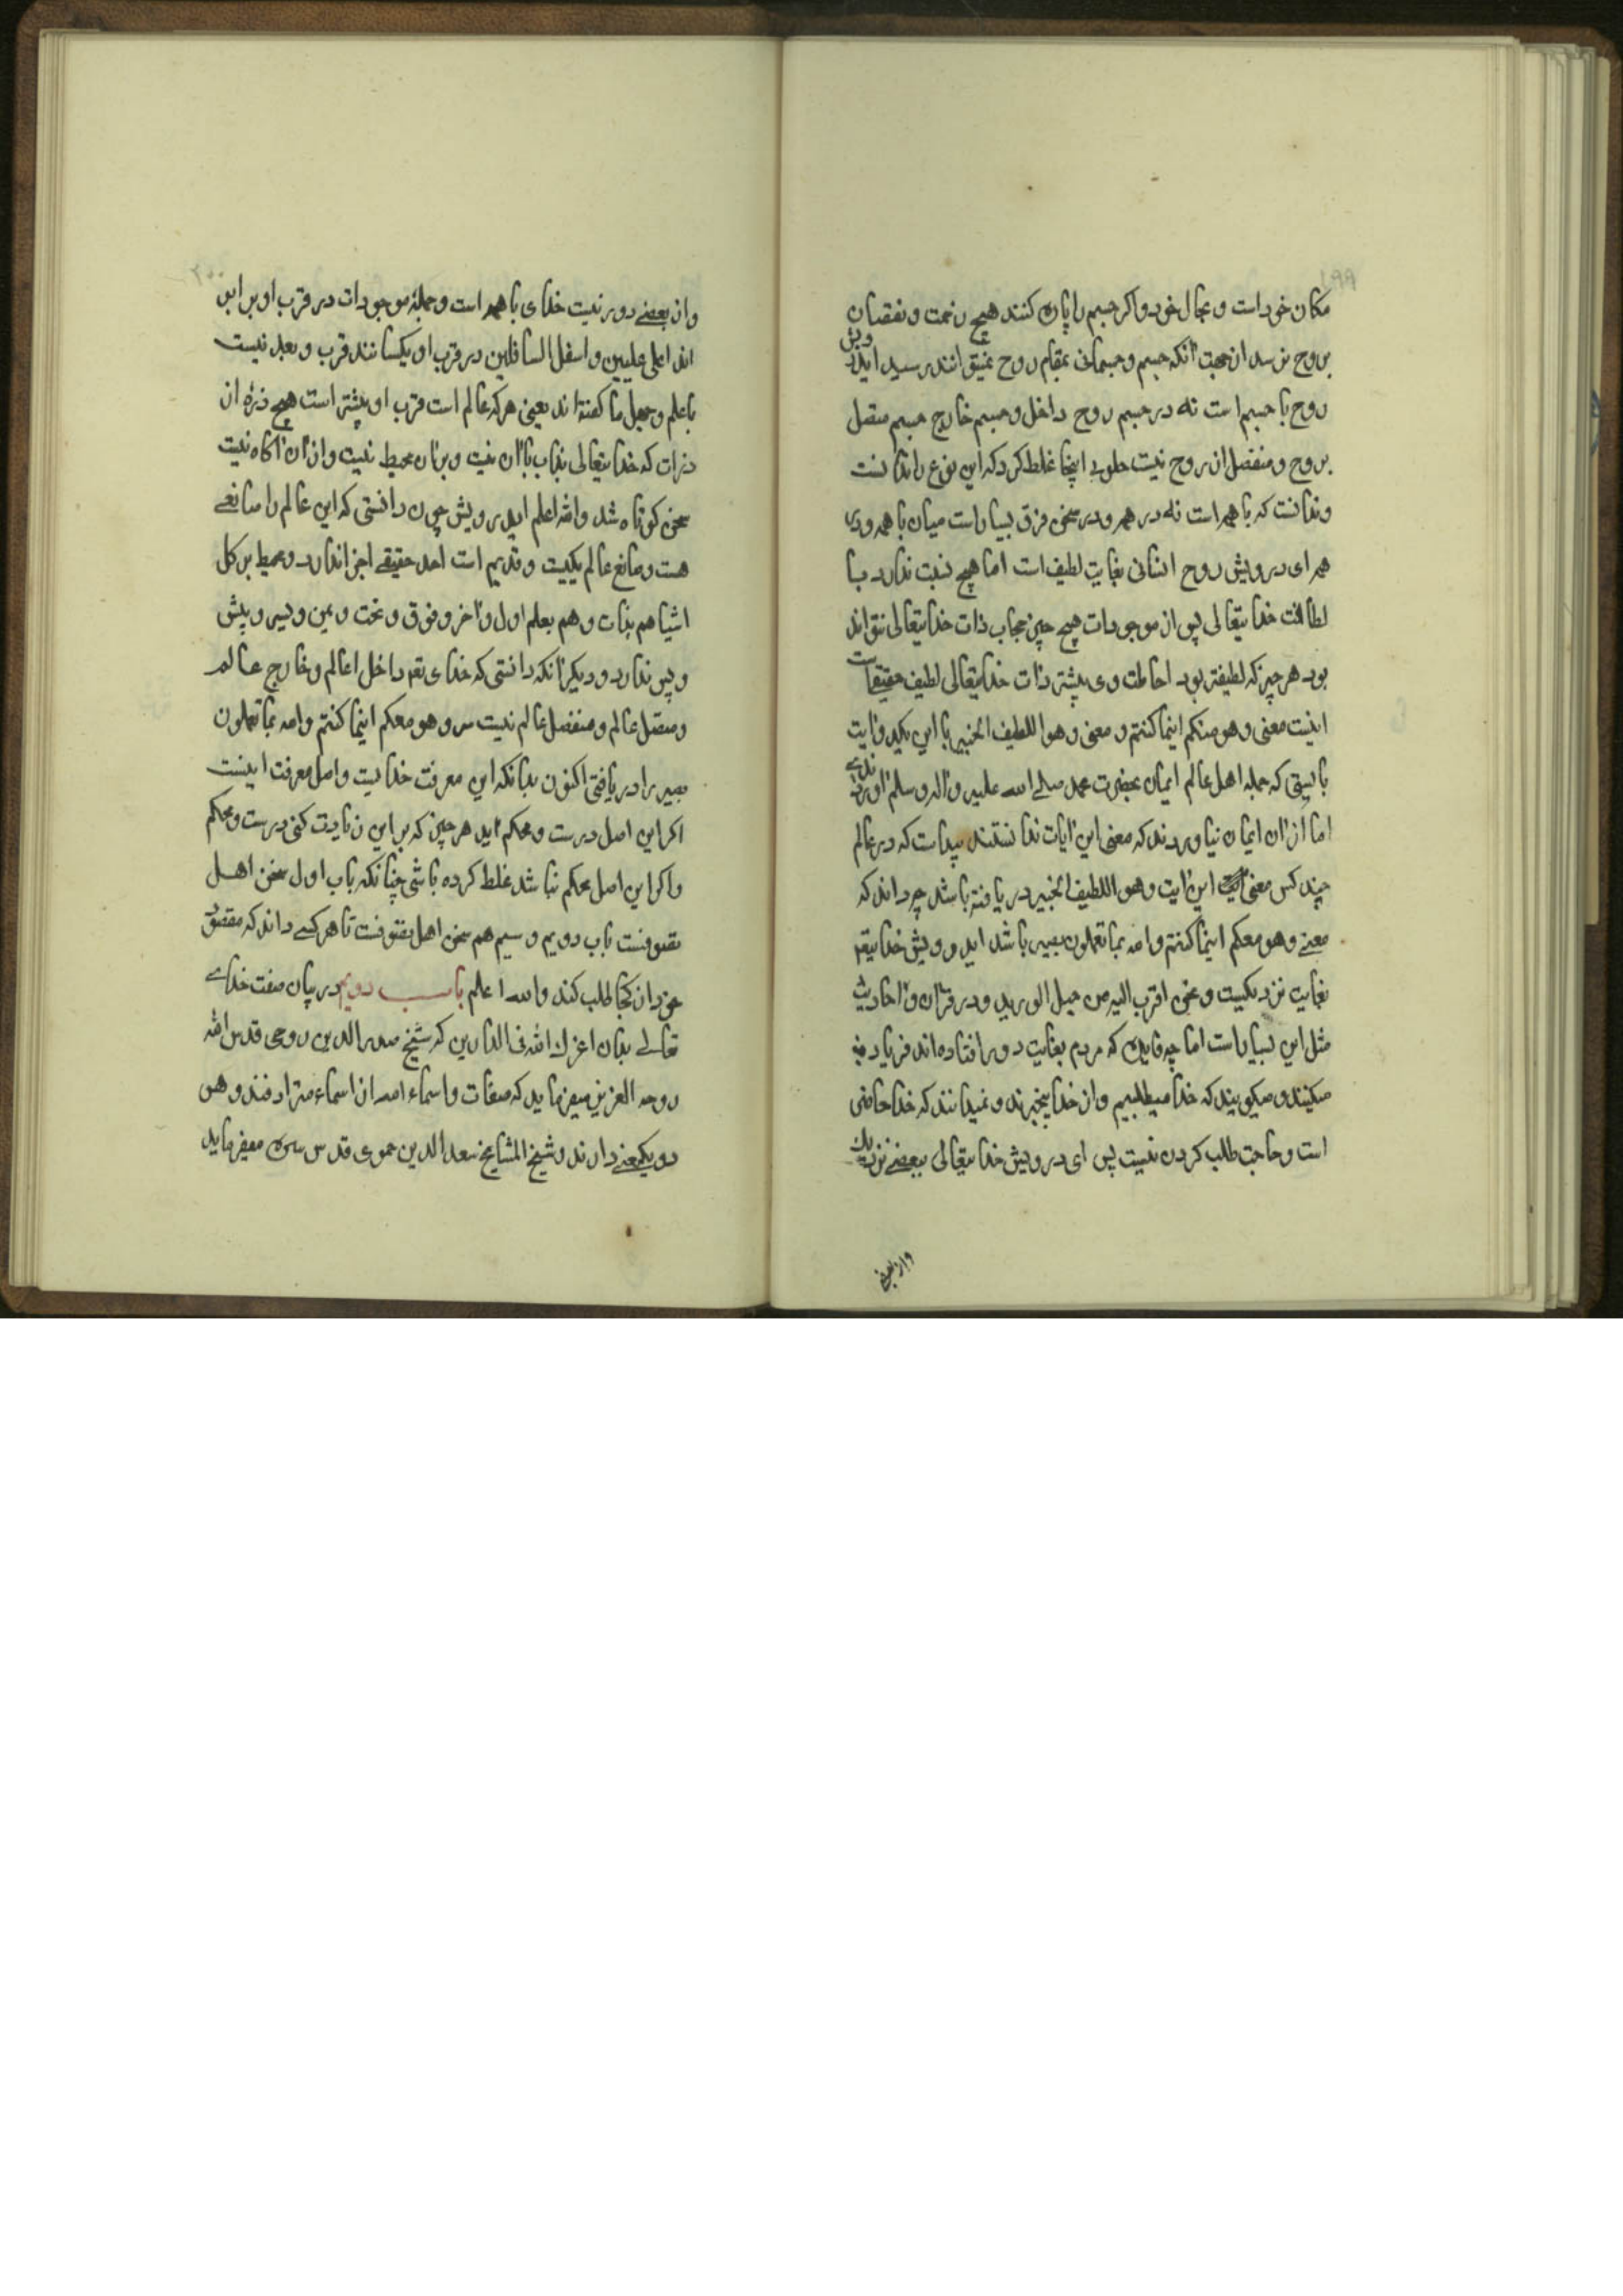 ۱۹۹
مکان خود است و بحال خود و اگر جسم را پاره کنند هیچ زحمت و نقصان
بروح نرسد از جهت آنکه جسم و جسمانی بمقام روح نمیتوانند رسید ایدرویش
روح با جسم است نه در جسم روح داخل و جسم خارج جسم متصل
بروح و منفصل از روح نیست حلولی اینجا غلط کرد که این نوع را ندانست
و ندانست که با همه است نه در همه و در سخن فرق بسیار است میان با همه و در
همه ای درویش روح انسانی بغایت لطیف است اما هیچ نسبت ندارد با
لطافت خدایتعالی پس از موجودات هیچ چیز حجاب ذات خدایتعالی نتواند
بود هر چیز که لطیفتر بود احاطت وی بیشتر ذات خدایتعالی لطیف حقیقیست
اینست معنی و هو معکم اینما کنتم و معنی و هو اللطیف الخبیر با این یکدو آیت
بایستی که جمله اهل عالم ایمان بحضرت محمد صلی الله علیه و آله و سلم آوردندی
اما از آن ایمان نیاوردند که معنی این آیات ندانستند پیداست که در عالم
چند کس معنی این آیت و هو اللطیف الخبیر دریافته باشد چه داند که
معنی و هو معکم اینما کنتم و الله بما تعملون بصیر باشد ایدرویش خدایتعه
بغایت نزدیکیست و نحن اقرب الیه من حبل الورید و در قرآن و احادیث
مثل این بسیار است اما چه فایده که مردم بغایت دور افتاده اند فریاد می
میکنند و میگویند که خدا میطلبیم و از خدا بیخبرند و نمیدانند که خدا حاضر
است و حاجت طلب کردن نیست پس ای درویش خدایتعالی ببعضی نزدیک
و از بعضی
۲۰۰
و از بعضی دور نیست خدای با همه است و جمله موجودات در قرب او برابر
اند اعلی علیین و اسفل السافلین در قرب او یکسانند قرب و بعد نیست
با علم و جهل ما گفته اند یعنی هر که عالم است قرب او بیشتر است هیچ ذره از
ذرات که خدایتعالی بذات با آن نیست و بر آن محیط نیست و از آن آگاه نیست
سخن کوتاه شد والله اعلم ایدرویش چون دانستی که این عالم را صانعی
هست و صانع عالم یکیست و قدیم است احد حقیقی اجزا ندارد و محیط بر کل
اشیا هم بذات و هم بعلم اول و آخر و فوق و تحت و یمن و یسر و پیش
و پس ندارد و دیگر آنکه دانستی که خدای تعه داخل عالم و خارج عالم
و متصل عالم و منفصل عالم نیست سر و هو معکم اینما کنتم والله بما تعملون
بصیر را دریافتی اکنون بدانکه این معرفت خدایست و اصل معرفت اینست
اگر این اصل درست و محکم آید هر چیز که بر این زیادت کنی درست و محکم
و اگر این اصل محکم نباشد غلط کرده باشی چنانکه باب اول سخن اهل
تصوفست باب دویم و سیم هم سخن اهل تصوفست تا هر کسی داند که مقصود
خود از کجا طلب کند والله اعلم باب دویم در بیان صفت خدای
تعالی بدان اعزک الله فی الدارین که شیخ صدر الدین روحی قدس الله
روحه العزیز میفرماید که صفات و اسماء الله از اسماء مترادفند و هر
دو یکمعنی دارند و شیخ المشایخ سعد الدین حموی قدس سره میفرماید